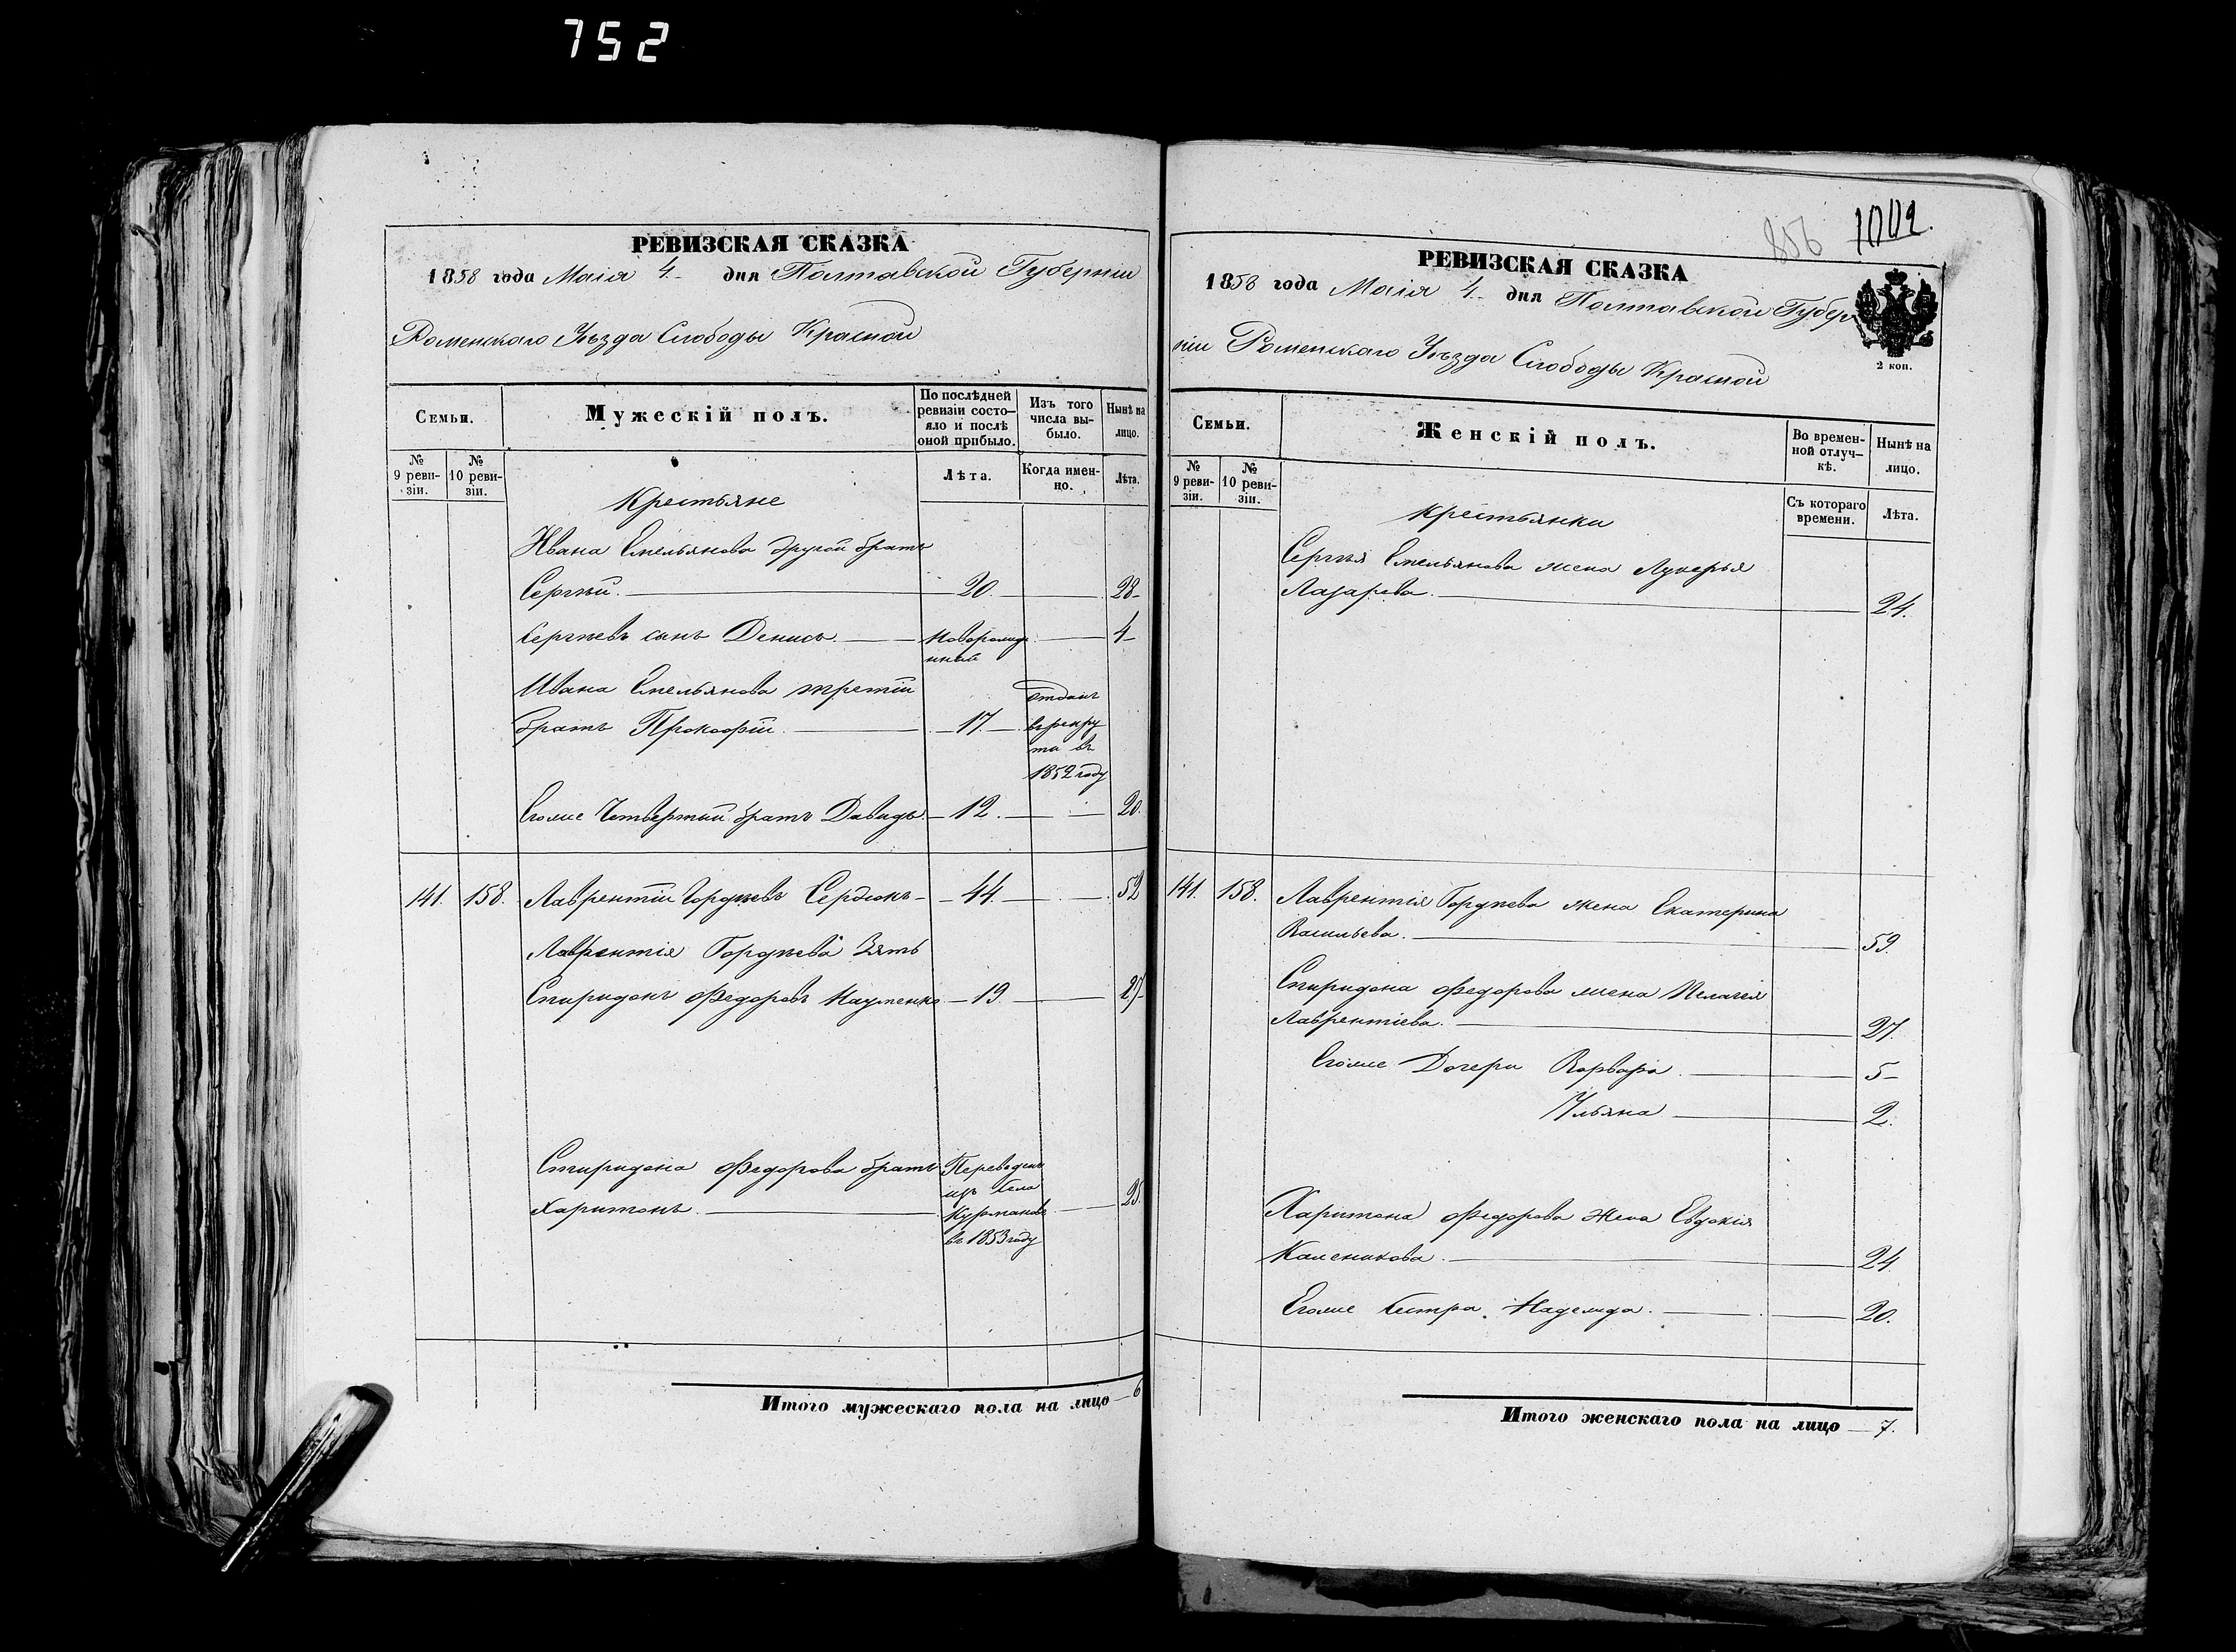 752
РЕВИЗСКАЯ СКАЗКА
1858 года Маія 4 дня Полтавской Губерніи
Роменскаго Уѣзда Слободы Красной
Семьи.
Мужескій полъ.
По послѣдней
ревизіи состо-
яло и послѣ
оной прибыло.
Изъ того
числа вы-
было.
Нынѣ на
лицо.
№
9 реви-
зіи.
№
10 реви-
зіи.
Лѣта.
Когда имен-
но.
Лѣта.
Крестьяне
Ивана Емельянова другой братъ
Сергѣй. 20. 28
Сергѣевъ сынъ Денисъ. Новорожде 4
нный
Ивана Емельянова третій
братъ Прокофій 17.
отданъ
въ рекру
ты въ
1852 году
Егоже Четвертый братъ Давидъ 12. 20.
141. 158. Лаврентій Гордѣевъ Сердюкъ 44. 52
Лаврентія Гордѣева Зять
Спиридонъ Федоровъ Науменко 19. 27
Спиридона Федорова братъ
Харитонъ. 25.
Переведенъ
изъ села
въ 1853 году
Итого мужескаго пола на лицо 6
856 1002.
РЕВИЗСКАЯ СКАЗКА
1858 года Маія 4 дня Полтавской Губер
ніи Роменскаго Уѣзда Слободы Красной
2 коп.
Семьи.
Женскій полъ.
Во времен-
ной отлуч-
кѣ.
Нынѣ на
лицо.
№
9 реви-
зіи.
№
10 реви-
зіи.
Съ котораго
времени.
Лѣта.
Крестьянки
Сергѣя Емельянова жена Лукерья
Лазарева. 24.
141. 158. Лаврентія Гордѣева жена Екатерина
Васильева. 59.
Спиридона Федорова жена Пелагея
Лаврентіева. 27.
Егоже Дочери Варвара 5
Ульяна 2.
Харитона Федорова Жена Евдокія
Каленикова. 24
Егоже Сестра Надежда. 20.
Итого женскаго пола на лицо 7.